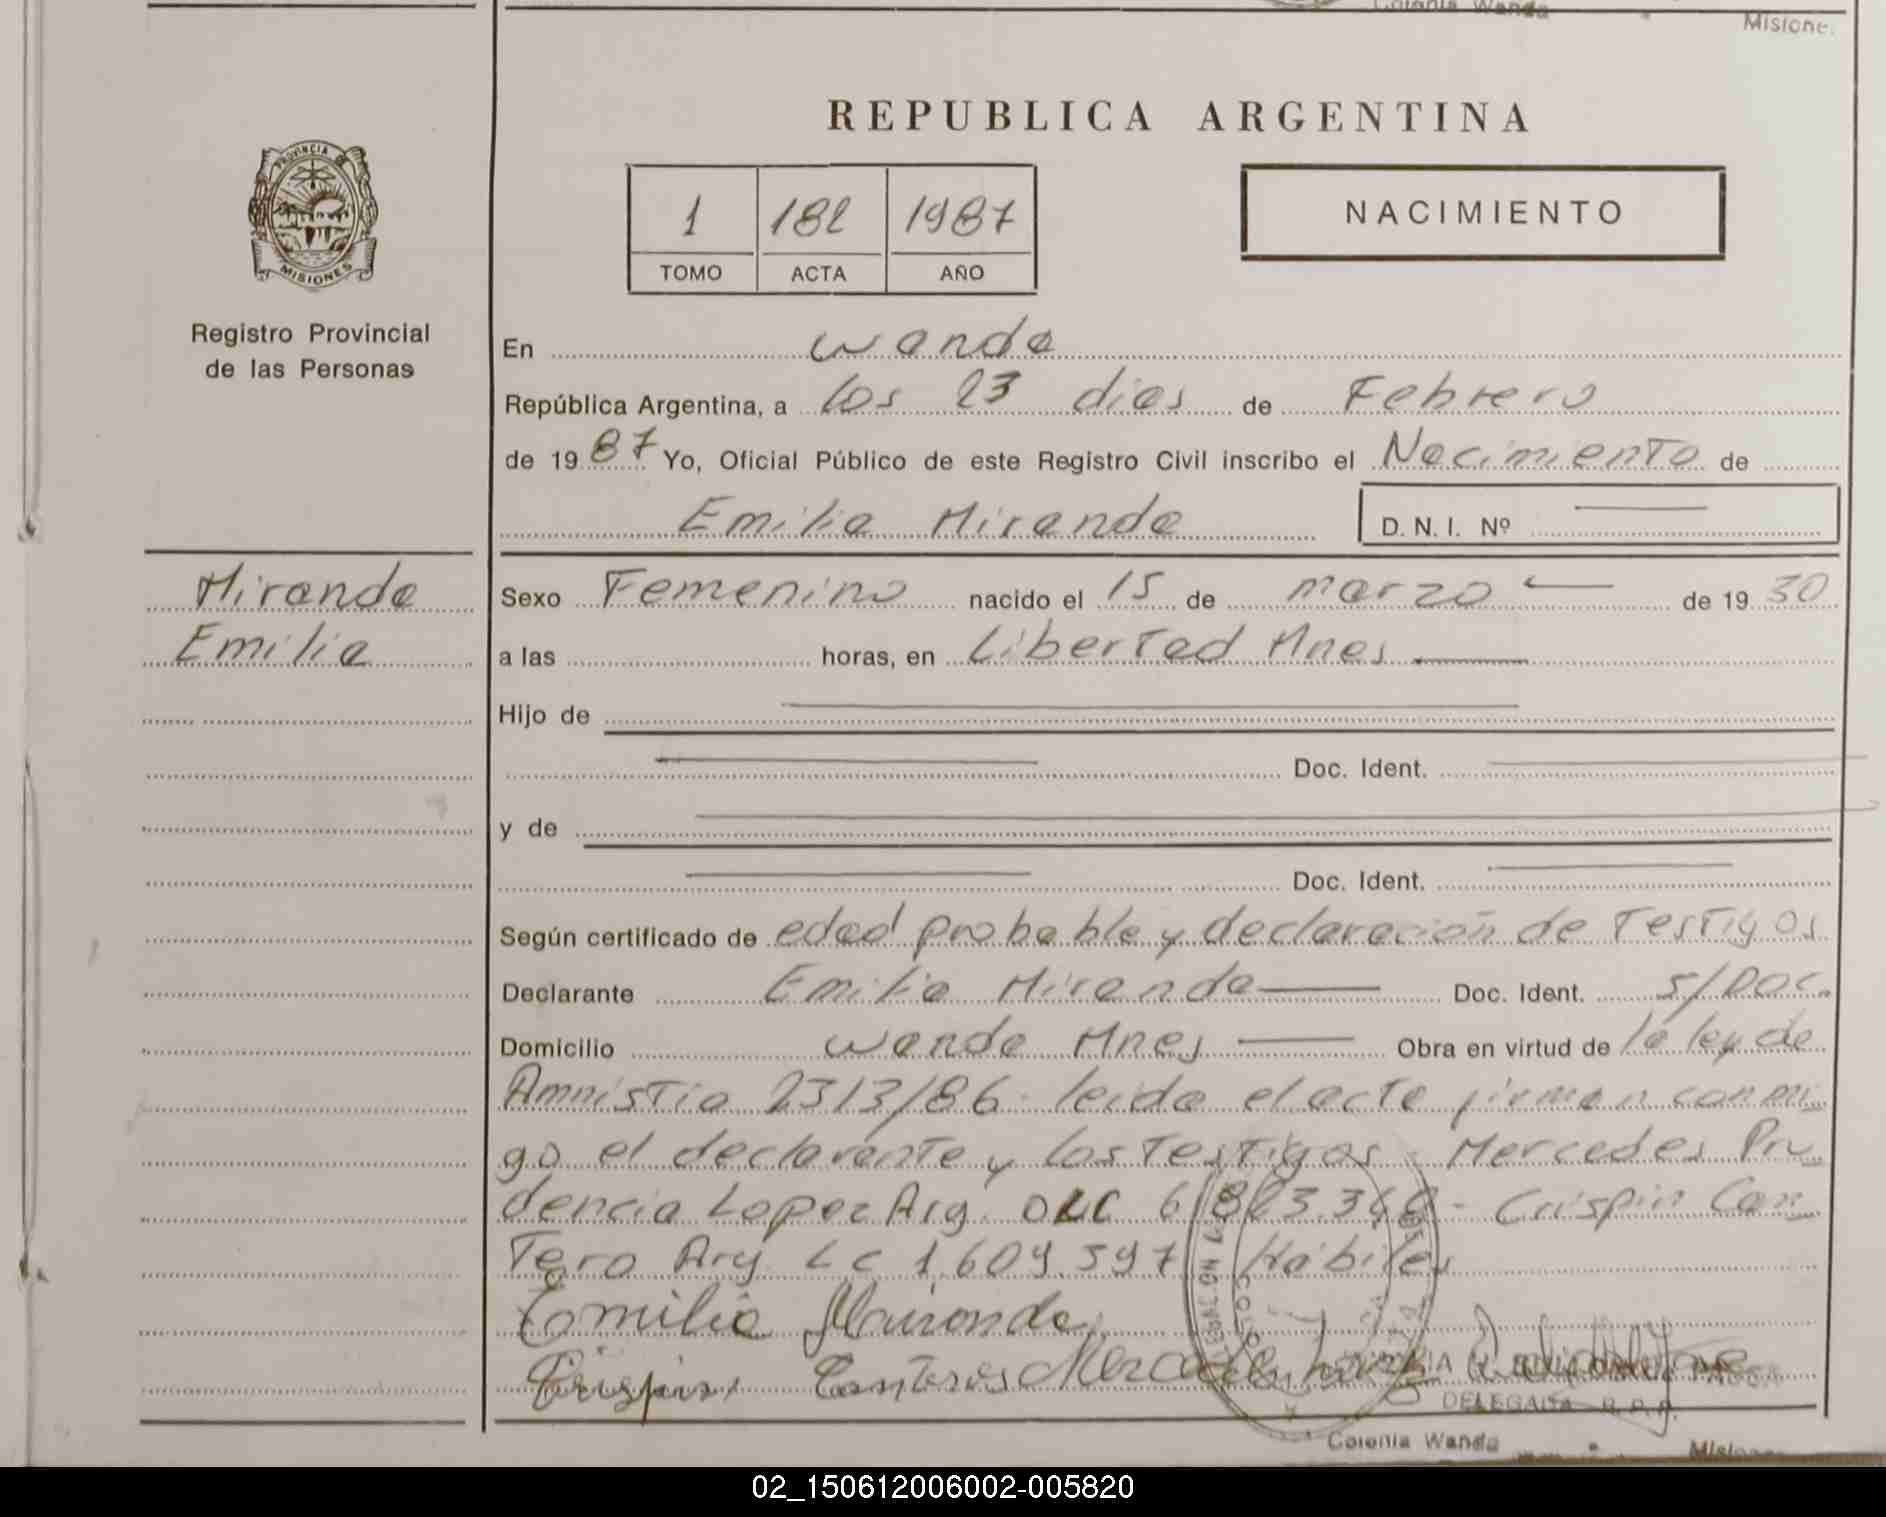 Colonia Wanda
Misione.
REPUBLICA ARGENTINA
PROVINCIA DE
MISIONES
Registro Provincial
de las Personas
1 182 1987
TOMO ACTA AÑO
NACIMIENTO
En Wanda
República Argentina, a los 23 dias de Febrero
de 1987 Yo, Oficial Público de este Registro Civil inscribo el Nacimiento de
Emilia Miranda D. N. I. Nº
Miranda
Emilia
Sexo Femenino nacido el 15 de marzo de 1930
a las horas, en Libertad Mnes
Hijo de
Doc. Ident.
y de
Doc. Ident.
Según certificado de edad probable y declaración de Testigos
Declarante Emilia Miranda Doc. Ident. S/Doc.
Domicilio Wanda Mnes Obra en virtud de la ley de
Amnistia 2313/86 leida el acta firman conmi
go el declarante y los Testigos Mercedes Pru
dencia Lopez Arg. - Crispin Can
Tero Arg LC 1.609.597 Hábiles
Emilia Miranda
Crispin Canteros Mercedes
DELEGADA R. P. P.
Colonia Wanda
02_150612006002-005820